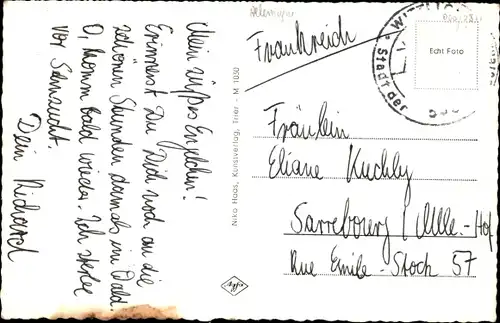 Mein süßes Engelchen!
Erinnerst Du Dich noch an die
schönen Stunden damals im Wald.
O, komm bald wieder. Ich sterbe
vor Sehnsucht.
Dein Richard
Niko Haas, Kunstverlag, Trier - M 1050
Agfa
Frankreich
Stadt der
Echt Foto
Fräulein
Eliane Kuchly
Sarrebourg / Mlle.-Hof
Rue Emile-Stoch 57